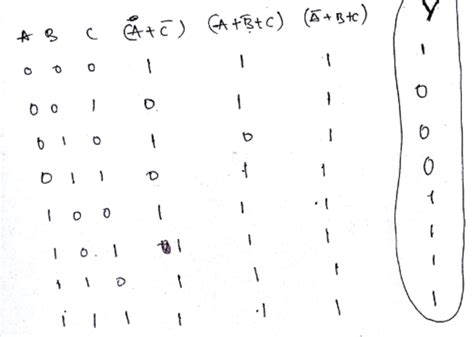 A B C (A+C̅) (A+B̅+C) (A̅+B+C) Y
0 0 0 1 1 1 1
0 0 1 0 1 1 0
0 1 0 1 0 1 0
0 1 1 0 1 1 0
1 0 0 1 1 1 1
1 0 1 1 1 1 1
1 1 0 1 1 1 1
1 1 1 1 1 1 1